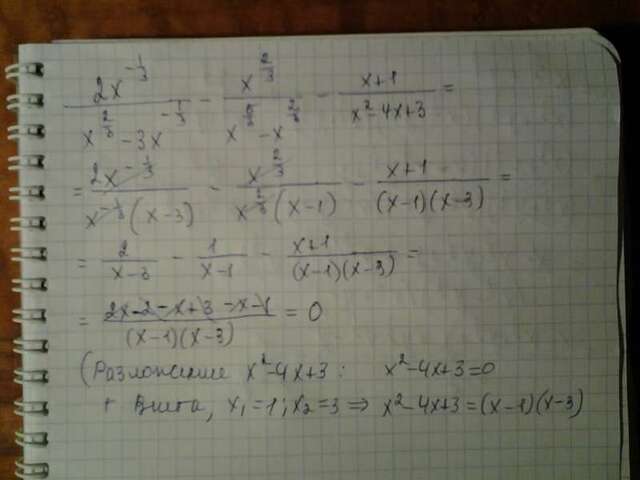 2x^(-1/3) / (x^(2/3) - 3x^(-1/3)) - x^(2/3) / (x^(5/3) - x^(2/3)) - (x+1) / (x²-4x+3) =
= 2x^(-1/3) / (x^(-1/3)(x-3)) - x^(2/3) / (x^(2/3)(x-1)) - (x+1) / ((x-1)(x-3)) =
= 2 / (x-3) - 1 / (x-1) - (x+1) / ((x-1)(x-3)) =
= (2x-2-x+3-x-1) / ((x-1)(x-3)) = 0
(Разложение x²-4x+3: x²-4x+3=0
т Виета, x₁=1; x₂=3 ⇒ x²-4x+3=(x-1)(x-3)